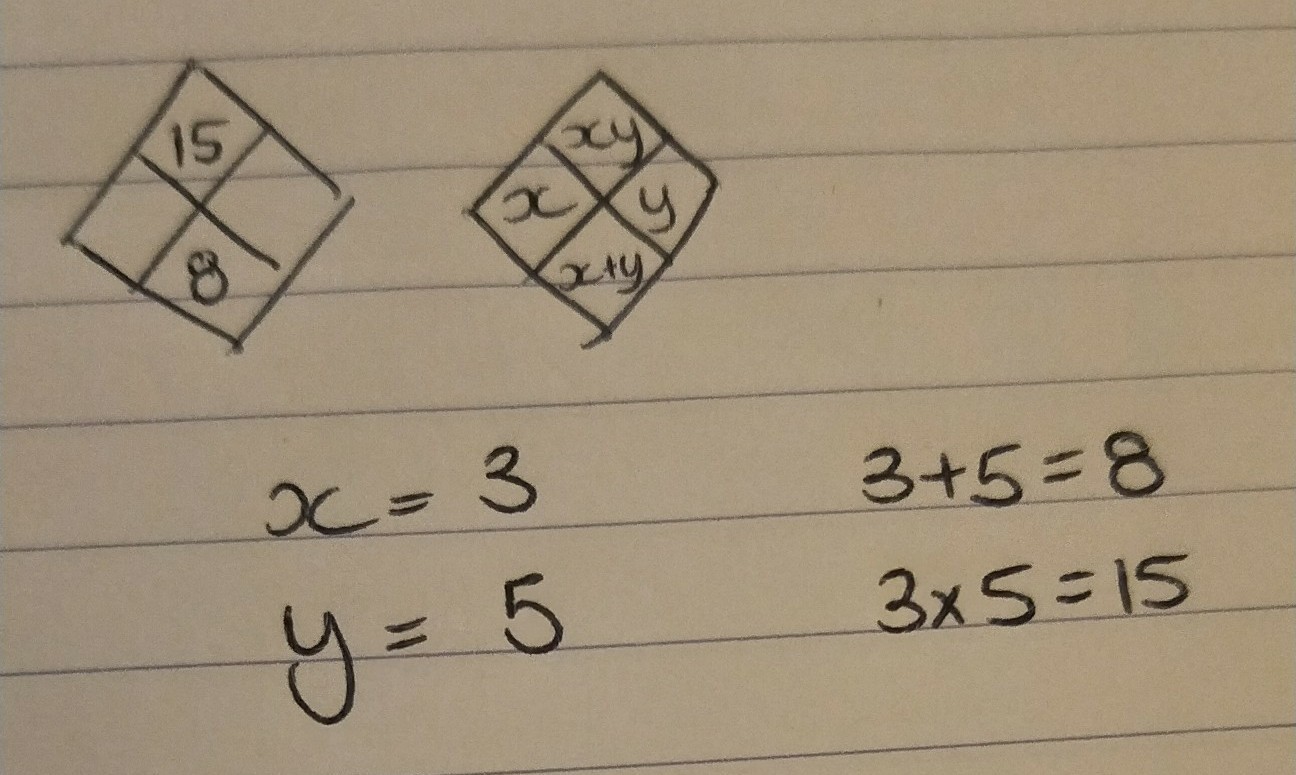 15
8
xy
x y
x+y
x = 3
y = 5
3+5=8
3x5=15